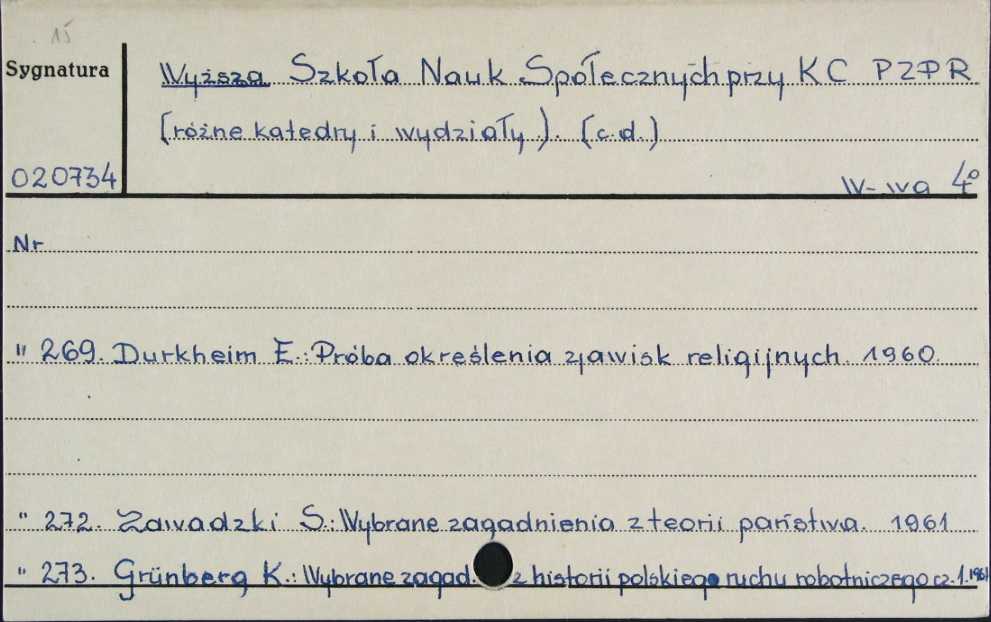 15
Sygnatura
Wyższa Szkoła Nauk Społecznych przy KC PZPR
(różne katedry i wydziały). (c.d.)
020734
W-wa 4°
Nr
" 269. Durkheim E.: Próba określenia zjawisk religijnych. 1960.
" 272. Zawadzki S.: Wybrane zagadnienia z teorii państwa. 1961
" 273. Grünberg K.: Wybrane zagad. z historii polskiego ruchu robotniczego cz.1.1961